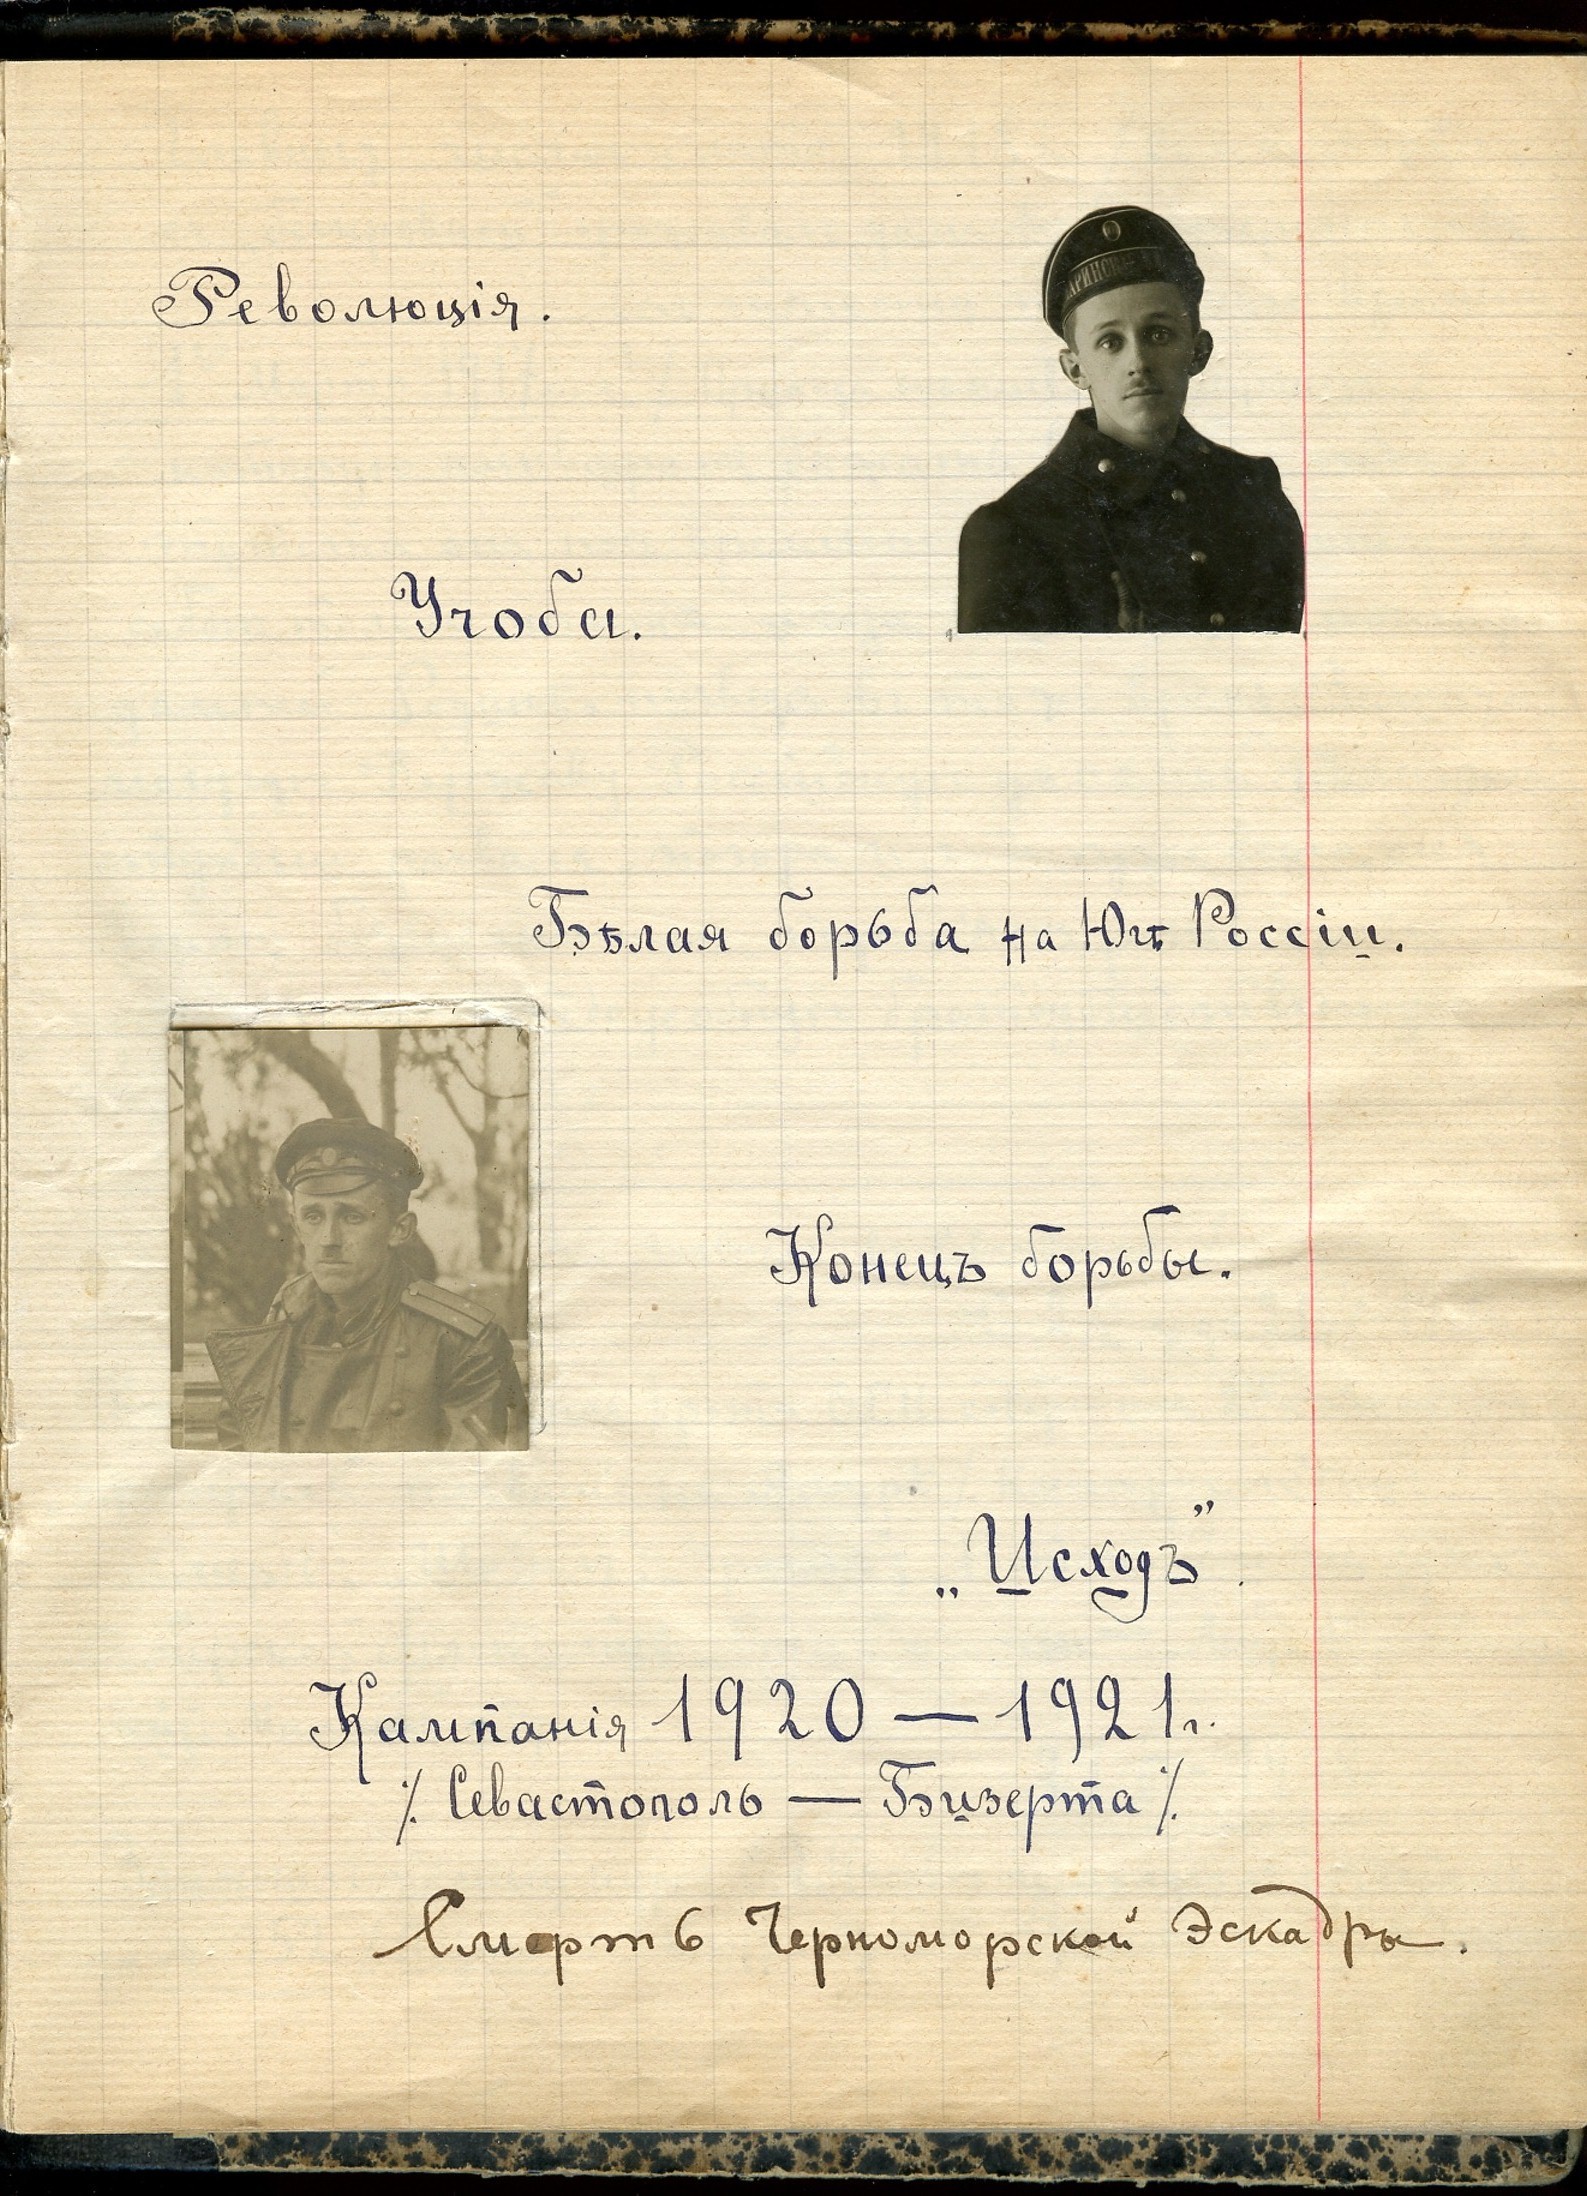 Революція.
АРИНСК
Учоба.
Бѣлая борьба на Югѣ Россіи.
Конецъ борьбы.
„Исходъ”.
Кампанія 1920 — 1921 г.
⁒ Севастополь — Бизерта ⁒
Смерть Черноморской Эскадры.